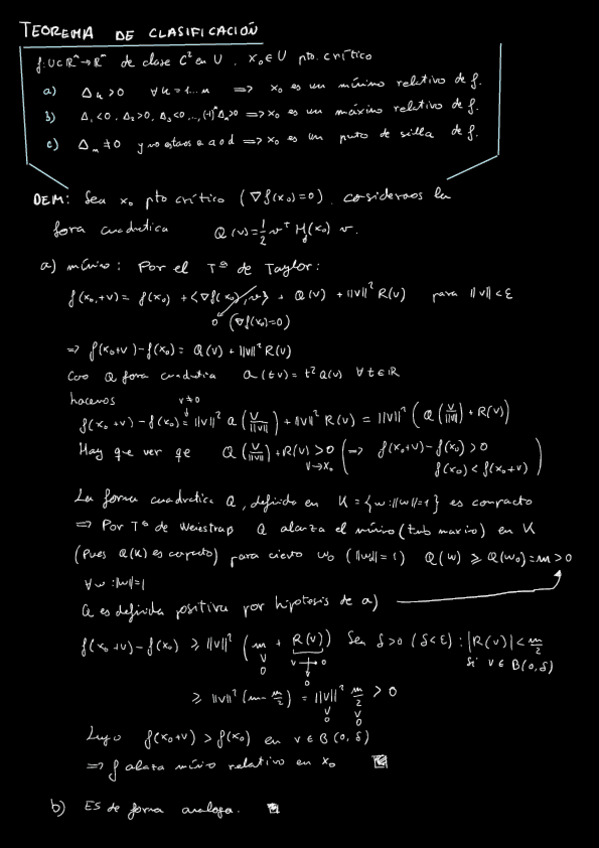 TEOREMA DE CLASIFICACIÓN
f: U⊂ℝⁿ→ℝᵐ de clase C² en U, x₀ ∈ U pto. crítico
a) Δₖ > 0 ∀k = 1...n ⟹ x₀ es un mínimo relativo de f.
b) Δ₁ < 0, Δ₂ > 0, Δ₃ < 0, ..., (-1)ⁿ Δₙ > 0 ⟹ x₀ es un máximo relativo de f.
c) Δₙ ≠ 0 y no estaos a a o d ⟹ x₀ es un puto de silla de f.
DEM: Sea x₀ pto crítico (∇f(x₀)=0), cosideraos la
fora cuadratica Q(v) = 1/2 vᵀ H_f(x₀) v.
a) míniro: Por el Tª de Taylor:
f(x₀+v) = f(x₀) + <∇f(x₀), v> + Q(v) + ||v||² R(v) para ||v|| < ε
0 (∇f(x₀)=0)
⟹ f(x₀+v) - f(x₀) = Q(v) + ||v||² R(v)
Coo Q fora cuadratica Q(tv) = t² Q(v) ∀t ∈ ℝ
hacenos v≠0
f(x₀+v) - f(x₀) = ||v||² Q(v/||v||) + ||v||² R(v) = ||v||² (Q(v/||v||) + R(v))
Hay que ver qe Q(v/||v||) + R(v) > 0 (⟹ f(x₀+v) - f(x₀) > 0
v→x₀ f(x₀) < f(x₀+v))
La forma cuadratica Q, definida en K = {w : ||w||=1} es compacto
⟹ Por Tª de Weiestraß Q alanza el míniro (tub maxiro) en K
(Pues Q(K) es copacto) para cierto w₀ (||w₀||=1) Q(w) ≥ Q(w₀) = m > 0
∀w : ||w||=1
Q es definida positiva por hipotesis de a)
f(x₀+v) - f(x₀) ≥ ||v||² (m + R(v)) Sea δ>0 (δ<ε) : |R(v)| < m/2
v 0 v→0 0 si v ∈ B(0,δ)
≥ ||v||² (m - m/2) = ||v||² m/2 > 0
v 0 v 0
Luego f(x₀+v) > f(x₀) en v ∈ B(0,δ)
⟹ f alaza míniro relativo en x₀
b) ES de forna analoga.